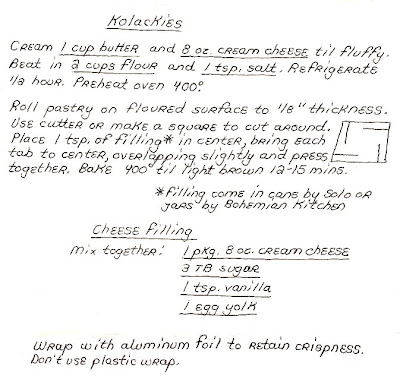 Kolackies
Cream 1 cup butter and 8 oz. cream cheese til fluffy.
Beat in 2 cups flour and 1 tsp. salt. Refrigerate
1/2 hour. Preheat oven 400°
Roll pastry on floured surface to 1/8" thickness.
Use cutter or make a square to cut around.
Place 1 tsp. of filling* in center, bring each
tab to center, overlapping slightly and press
together. Bake 400° til light brown 12-15 mins.
*filling come in cans by Solo or
jars by Bohemian Kitchen
Cheese filling
mix together: 1 pkg. 8 oz. cream cheese
3 TB sugar
1 tsp. vanilla
1 egg yolk
Wrap with aluminum foil to retain crispness.
Don't use plastic wrap.